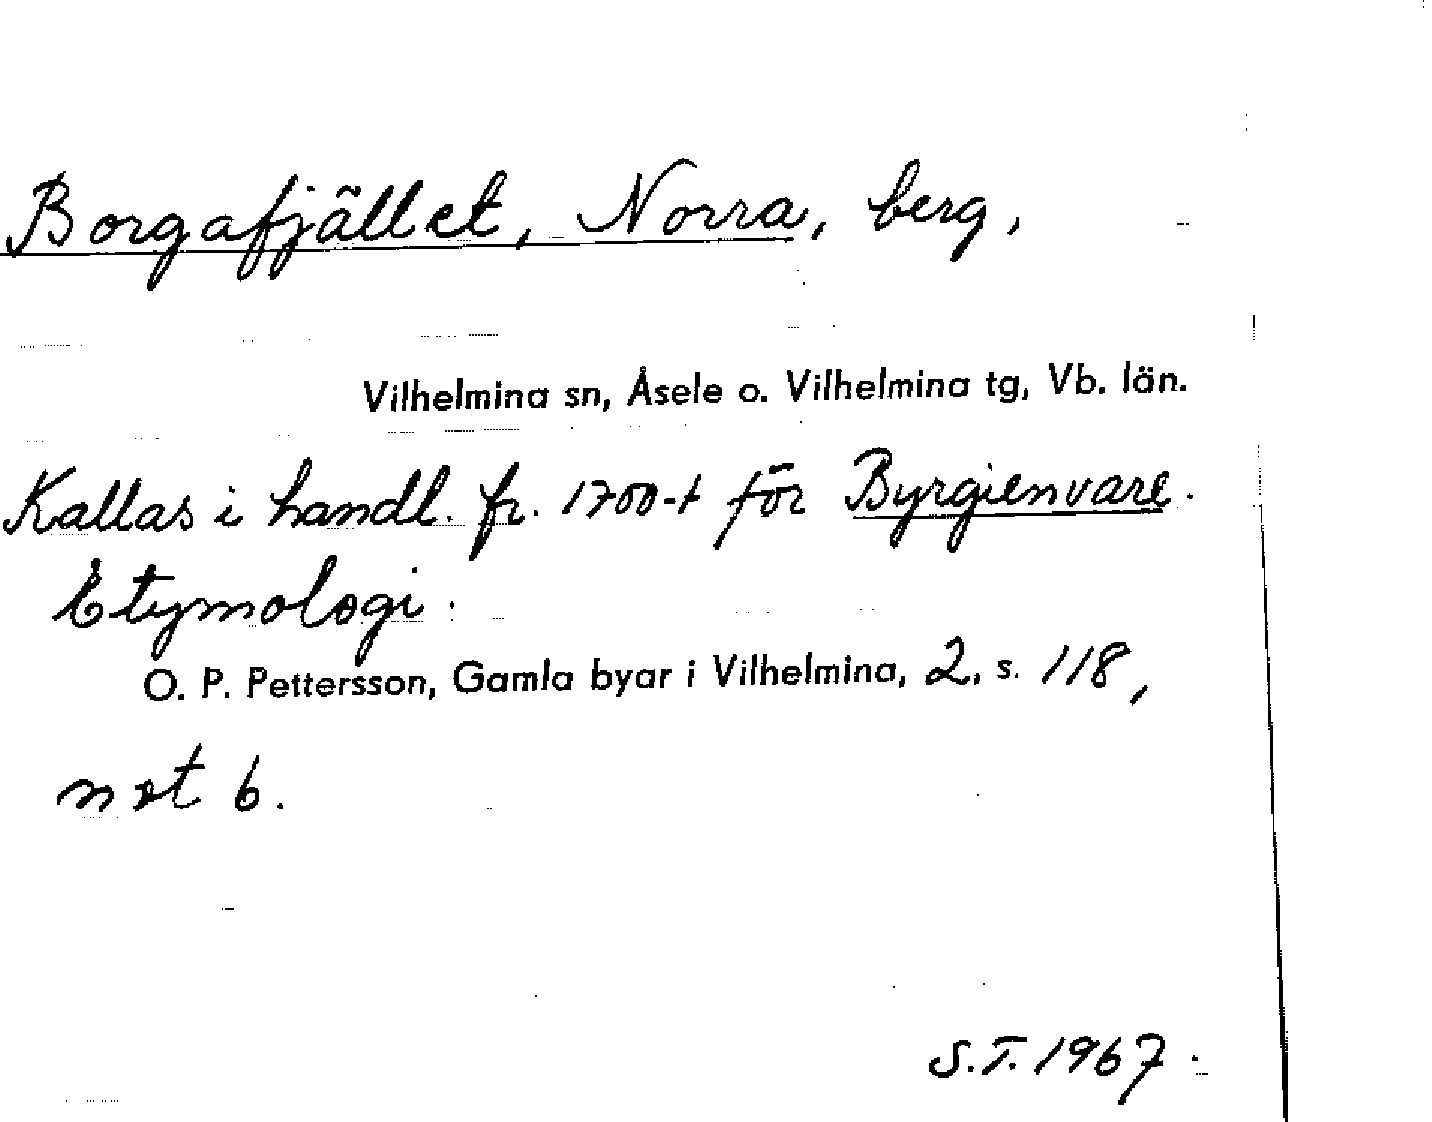 Borgafjället, Norra, berg,
Vilhelmina sn, Åsele o. Vilhelmina tg, Vb. län.
Kallas i handl. fr. 1700-t för Byrgienvare.
Etymologi.
O. P. Pettersson, Gamla byar i Vilhelmina, 2, s. 118,
not 6.
S.T. 1967.